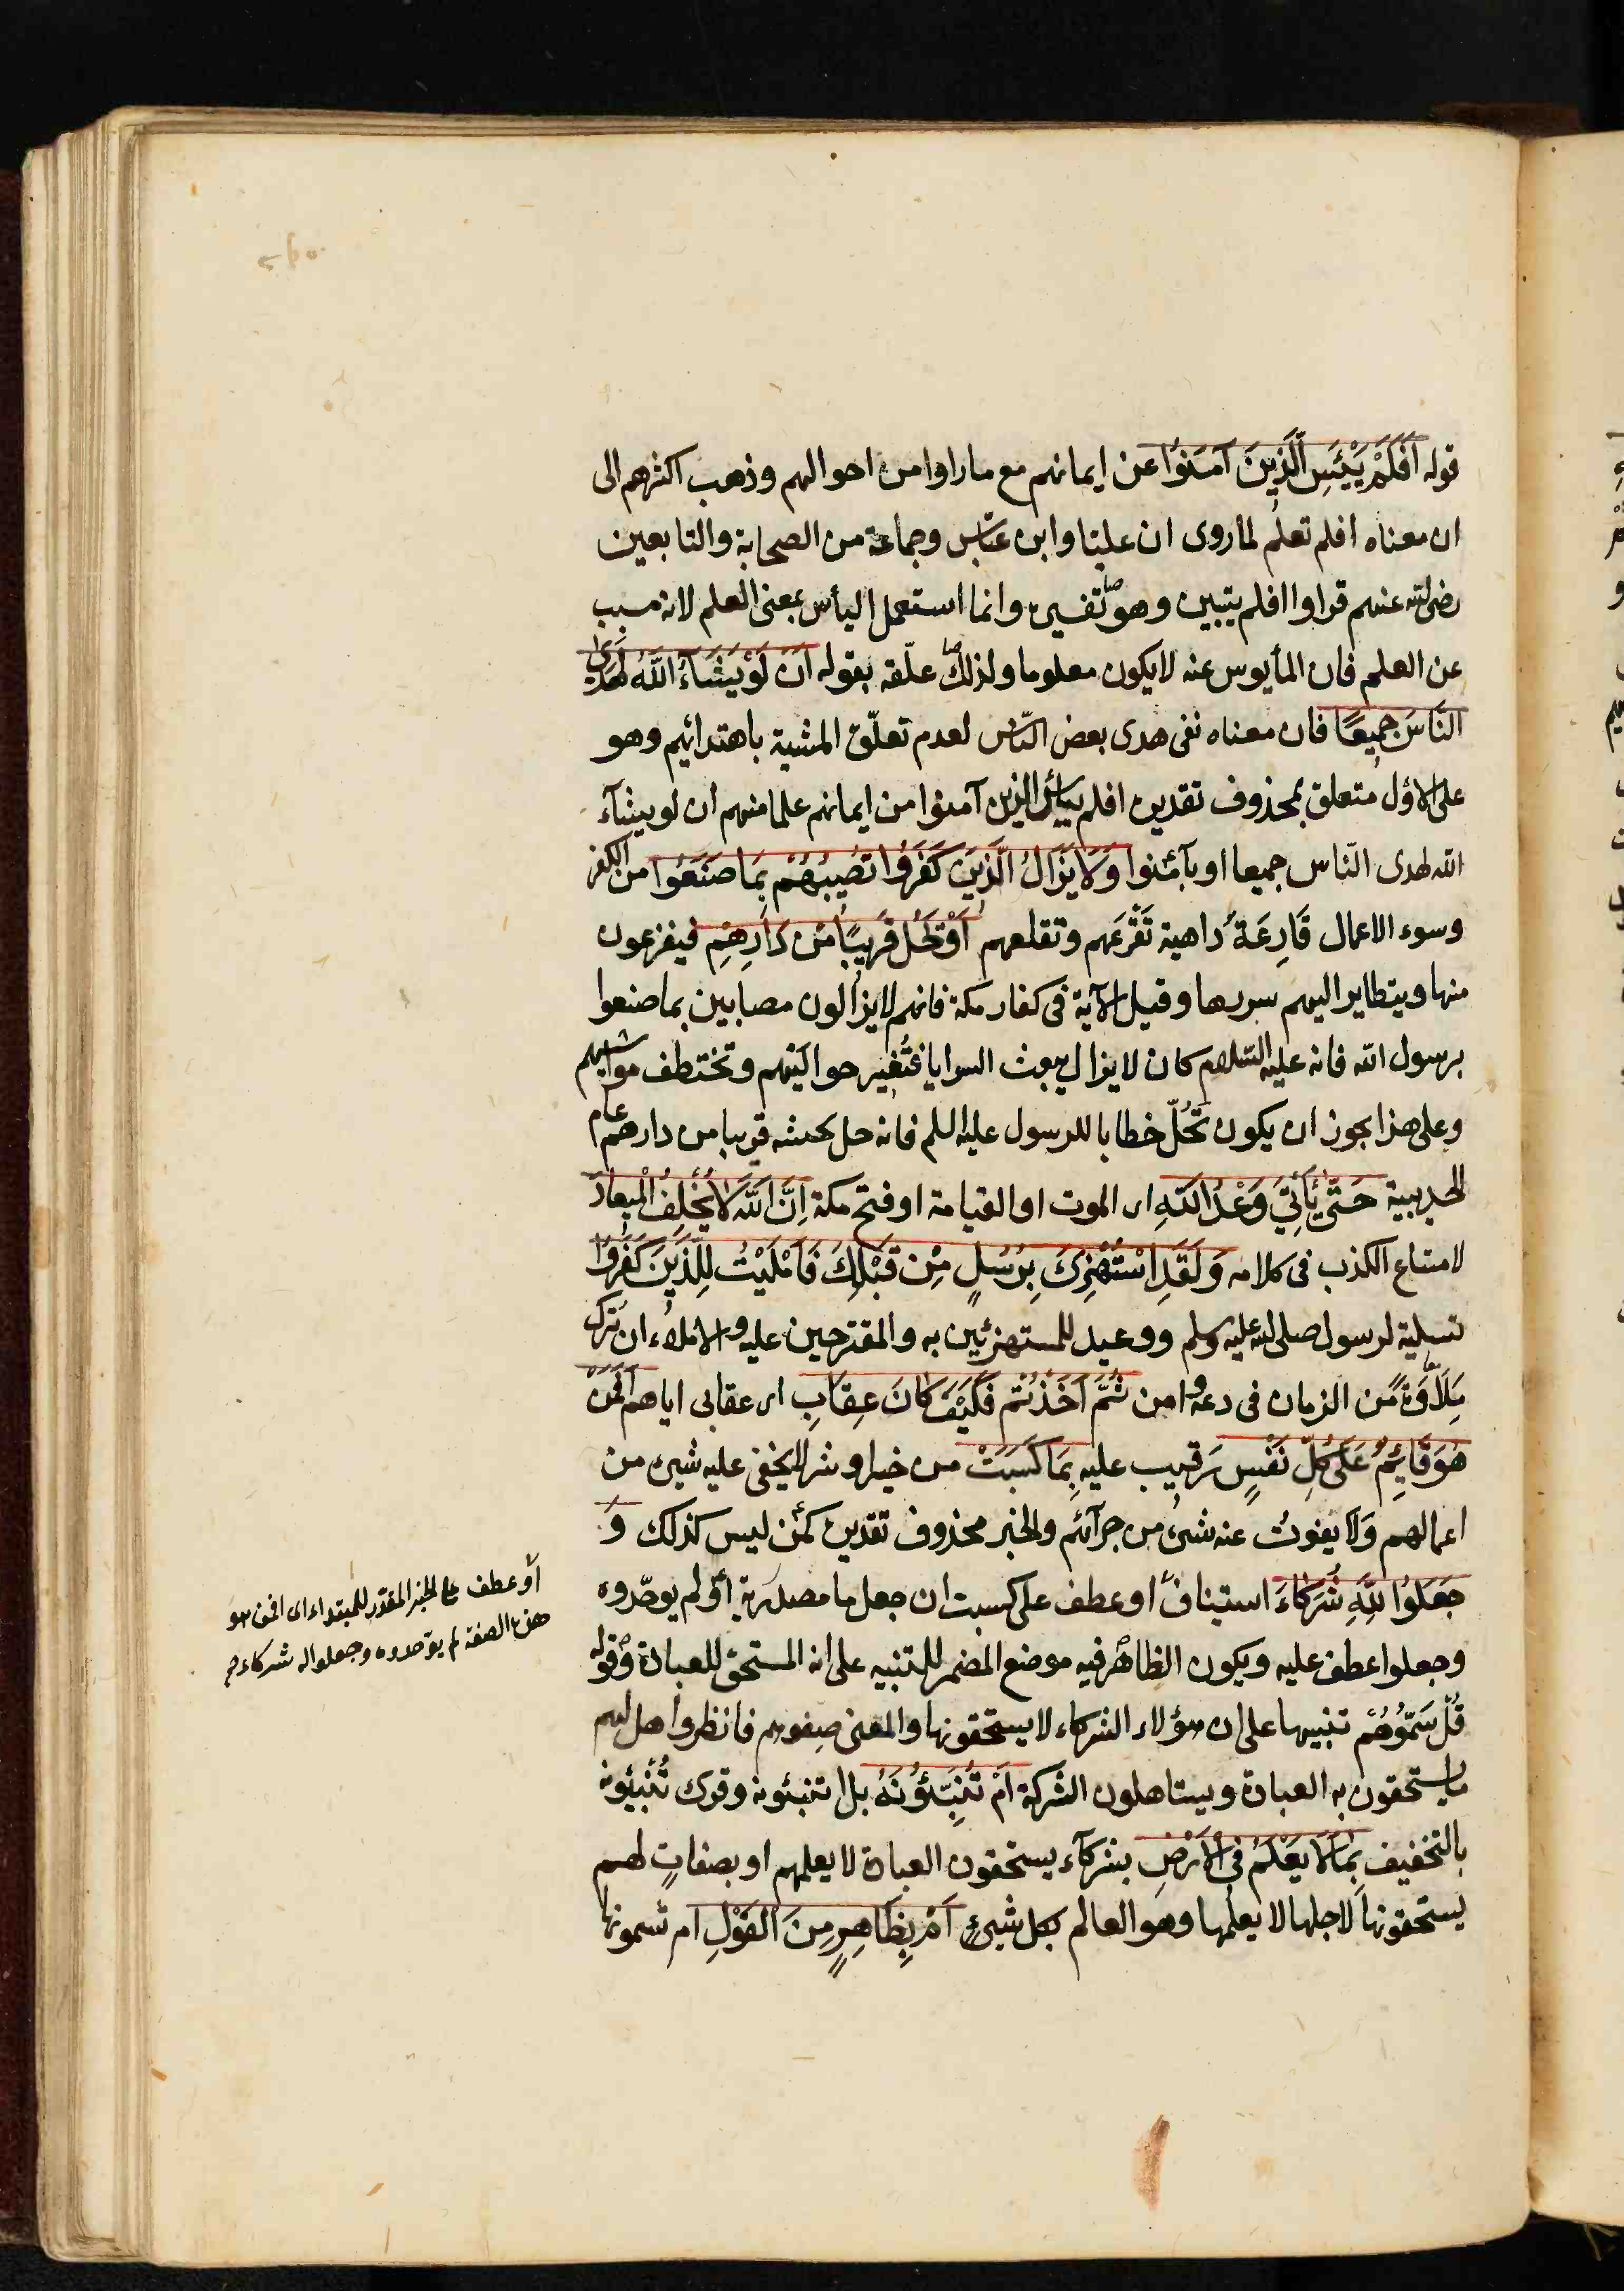 قوله اَفَلَمْ يَيْئَسِ الَّذِينَ آمَنُوا عن ايمانهم مع ما راوا من احوالهم وذهب اكثرهم الى
ان معناه افلم تعلم لما روى ان عليّا وابن عبّاس وجماعة من الصحابة والتابعين
رضى الله عنهم قراوا افلم يتبين وهو تفسيره وانما استعمل اليأس بمعنى العلم لانه مسبب
عن العلم فان المأيوس عنه لا يكون معلوما ولذلك علّقه بقوله اَنْ لَوْ يَشَاءُ اللّٰهُ لَهَدَى
النَّاسَ جَمِيعًا فان معناه نفى هدى بعض النّاس لعدم تعلّق المشية باهتدائهم وهو
على الاول متعلق بمحذوف تقديره افلم ييأس الذين آمنوا من ايمانهم علما منهم ان لو يشآء
الله لهدى النّاس جميعا او بآمنوا وَلَا يَزَالُ الَّذِينَ كَفَرُوا تُصِيبُهُمْ بِمَا صَنَعُوا من الكفر
وسوء الاعمال قَارِعَةٌ داهية تَقْرَعُهم وتقلعهم اَوْ تَحُلُّ قَرِيبًا مِنْ دَارِهِمْ فيفزعون
منها ويتطاير اليهم شررها وقيل الآية فى كفار مكة فانهم لا يزالون مصابين بما صنعوا
برسول الله فانه عليه السّلام كان لا يزال يبعث السرايا فتُغير حواليهم وتختطف مواشيهم
وعلى هذا يجوز ان يكون تَحُلّ خطابا للرسول عليه السلم فانه حل بجيشه قريبا من دارهم عام
الحديبية حَتّٰى يَأْتِيَ وَعْدُ اللّٰهِ اى الموت او القيامة او فتح مكة اِنَّ اللّٰهَ لَا يُخْلِفُ الْمِيعَادَ
لامتناع الكذب فى كلامه وَلَقَدِ اسْتُهْزِئَ بِرُسُلٍ مِنْ قَبْلِكَ فَاَمْلَيْتُ لِلَّذِينَ كَفَرُوا
تسلية لرسول صلى الله عليه وسلم ووعيد للمستهزئين به والمقترحين عليه والاملاء ان يترك
مِلَاوَةً من الزمان فى دعة وامن ثُمَّ اَخَذْتُهُمْ فَكَيْفَ كَانَ عِقَابِ اى عقابى اياهم اَفَمَنْ
هُوَ قَائِمٌ عَلٰى كُلِّ نَفْسٍ رقيب عليه بِمَا كَسَبَتْ من خير او شر لا يخفى عليه شيئ من
اعمالهم وَلا يفوتُ عنه شيئ من جزآئهم والخبر محذوف تقديره كمن ليس كذلك وَ
جَعَلُوا لِلّٰهِ شُرَكَاءَ استيناف او عطف على كسبت ان جعل ما مصدرية او لم يوحّدوه
وجعلوا عطف عليه ويكون الظاهر فيه موضع المضمر للتنبيه على انه المستحق للعبادة وقوله
قُلْ سَمُّوهُمْ تنبيها على ان هؤلاء الشركاء لا يستحقونها والمعنى صِفوهم فانظروا هل لهم
ما يستحقون به العبادة ويستاهلون الشركة اَمْ تُنَبِّؤُنَهُ بل اتنبئونه وقرئ تُنْبِئُونه
بالتخفيف بِمَا لَا يَعْلَمُ فِى الْاَرْضِ بشركآء يستحقون العبادة لا يعلمهم او بصفاتٍ لهم
يستحقونها لاجلها لا يعلمها وهو العالم بكل شيئٍ اَمْ بِظَاهِرٍ مِنَ الْقَوْلِ ام تسمونها
او عطف على الخبر المقدر للمبتداء اى افمن هو
هذه الصفة لم يوحدوه وجعلوا له شركاء